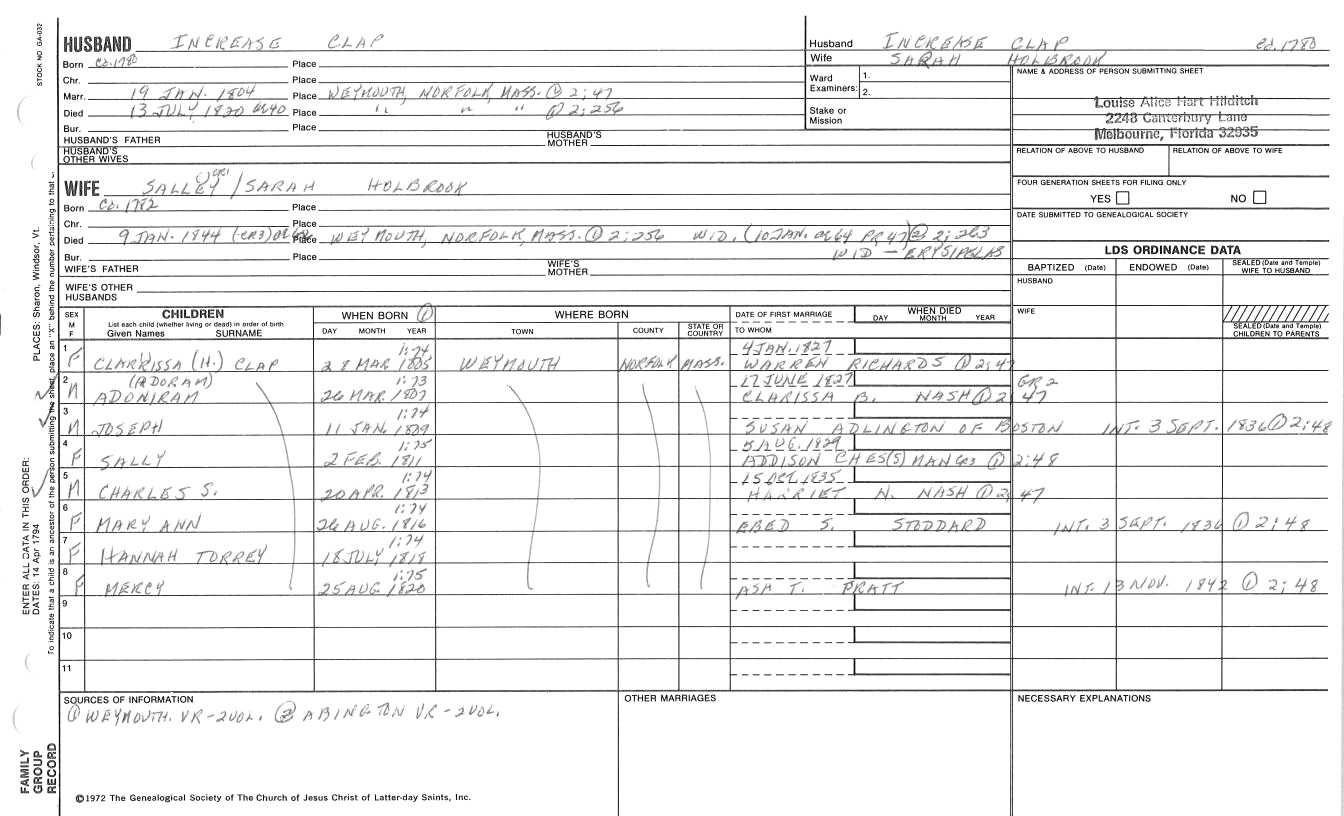 STOCK NO. GA-032
PLACES: Sharon, Windsor, Vt.
ENTER ALL DATA IN THIS ORDER:
DATES: 14 Apr 1794
To indicate that a child is an ancestor of the person submitting the sheet, place an "X" behind the number pertaining to that
FAMILY
GROUP
RECORD
HUSBAND INCREASE CLAP
Born Ca. 1780 Place
Chr. Place
Marr. 19 JAN. 1804 Place WEYMOUTH, NORFOLK, MASS. ① 2;47
Died 13 JULY 1820 ae40 Place " " " ① 2;256
Bur. Place
HUSBAND'S FATHER HUSBAND'S MOTHER
HUSBAND'S OTHER WIVES
WIFE SALLEY /SARAH HOLBROOK
Born Ca. 1782 Place
Chr. Place
Died 9 JAN. 1844 (CR3) Place WEYMOUTH, NORFOLK, MASS. ① 2;256 WID. (10 JAN. ae64 PR47) ② 2;263
Bur. Place WID — ERYSIPELAS
WIFE'S FATHER WIFE'S MOTHER
WIFE'S OTHER HUSBANDS
Husband INCREASE CLAP Ca. 1780
Wife SARAH HOLBROOK
Ward Examiners: 1. 2.
Stake or Mission
NAME & ADDRESS OF PERSON SUBMITTING SHEET
Louise Alice Hart Hilditch
2248 Canterbury Lane
Melbourne, Florida 32935
RELATION OF ABOVE TO HUSBAND RELATION OF ABOVE TO WIFE
FOUR GENERATION SHEETS FOR FILING ONLY
YES NO
DATE SUBMITTED TO GENEALOGICAL SOCIETY
LDS ORDINANCE DATA
BAPTIZED (Date) ENDOWED (Date) SEALED (Date and Temple) WIFE TO HUSBAND
HUSBAND
WIFE
SEALED (Date and Temple) CHILDREN TO PARENTS
SEX M F
CHILDREN
List each child (whether living or dead) in order of birth
Given Names SURNAME
WHEN BORN ①
DAY MONTH YEAR
WHERE BORN
TOWN COUNTY STATE OR COUNTRY
DATE OF FIRST MARRIAGE
TO WHOM
WHEN DIED
DAY MONTH YEAR
1:74 4 JAN. 1827
1 F CLARRISSA (H.) CLAP 28 MAR 1805 WEYMOUTH NORFOLK MASS. WARREN RICHARDS ① 2;47
(ADORAM) 1:73 17 JUNE 1827 GR2
2 M ADONIRAM 26 MAR. 1807 CLARISSA B. NASH ① 2 47
1:74
3 M JOSEPH 11 JAN. 1809 SUSAN ADLINGTON OF BOSTON INT. 3 SEPT. 1836 ① 2;48
1:75 5 AUG. 1829
4 F SALLY 2 FEB. 1811 ADDISON CHES(S)MAN GR3 ① 2;48
1:74 15 OCT. 1835
5 M CHARLES S. 20 APR. 1813 HARRIET N. NASH ① 2; 47
1:74
6 F MARY ANN 26 AUG. 1816 EBED S. STODDARD INT. 3 SEPT. 1836 ① 2;48
1:74
7 F HANNAH TORREY 18 JULY 1818
1:75
8 F MERCY 25 AUG. 1820 ASA T. PRATT INT. 13 NOV. 1842 ① 2;48
9
10
11
SOURCES OF INFORMATION
① WEYMOUTH. VR-2VOL. ② ABINGTON VR-2VOL.
OTHER MARRIAGES
NECESSARY EXPLANATIONS
©1972 The Genealogical Society of The Church of Jesus Christ of Latter-day Saints, Inc.